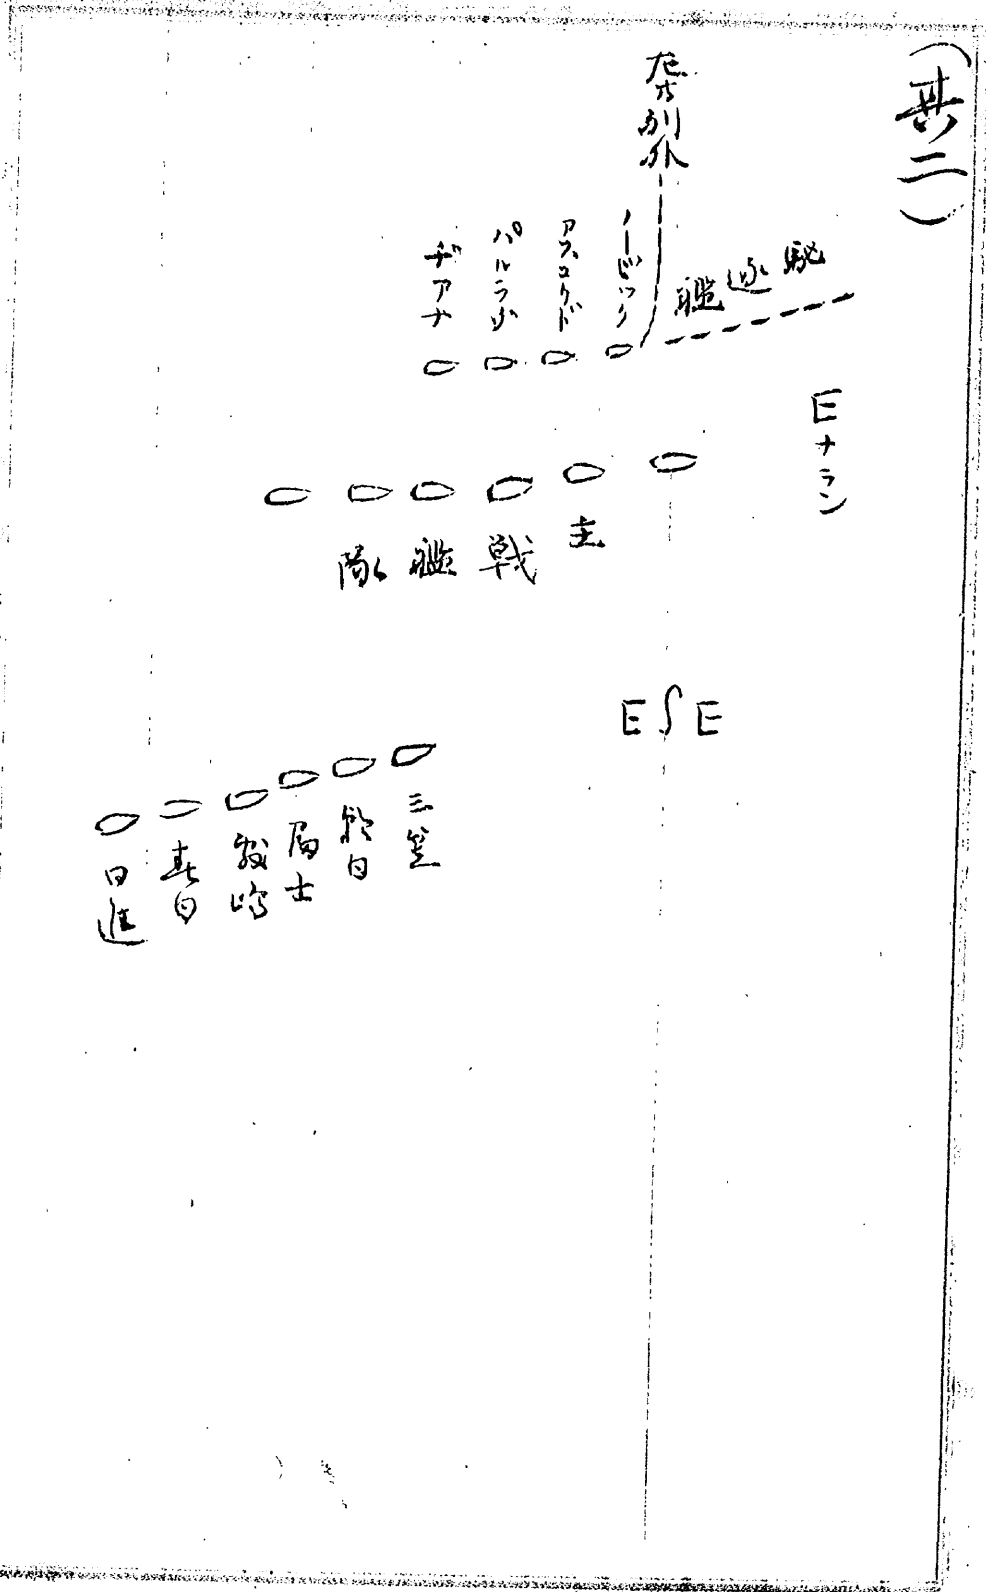 (其二)
左方列外
駆逐艦
ノービック
アスコルド
パルラダ
ヂアナ
Eナラン
主戦艦隊
ESE
三笠
朝日
冨士
敷嶋
春日
日進